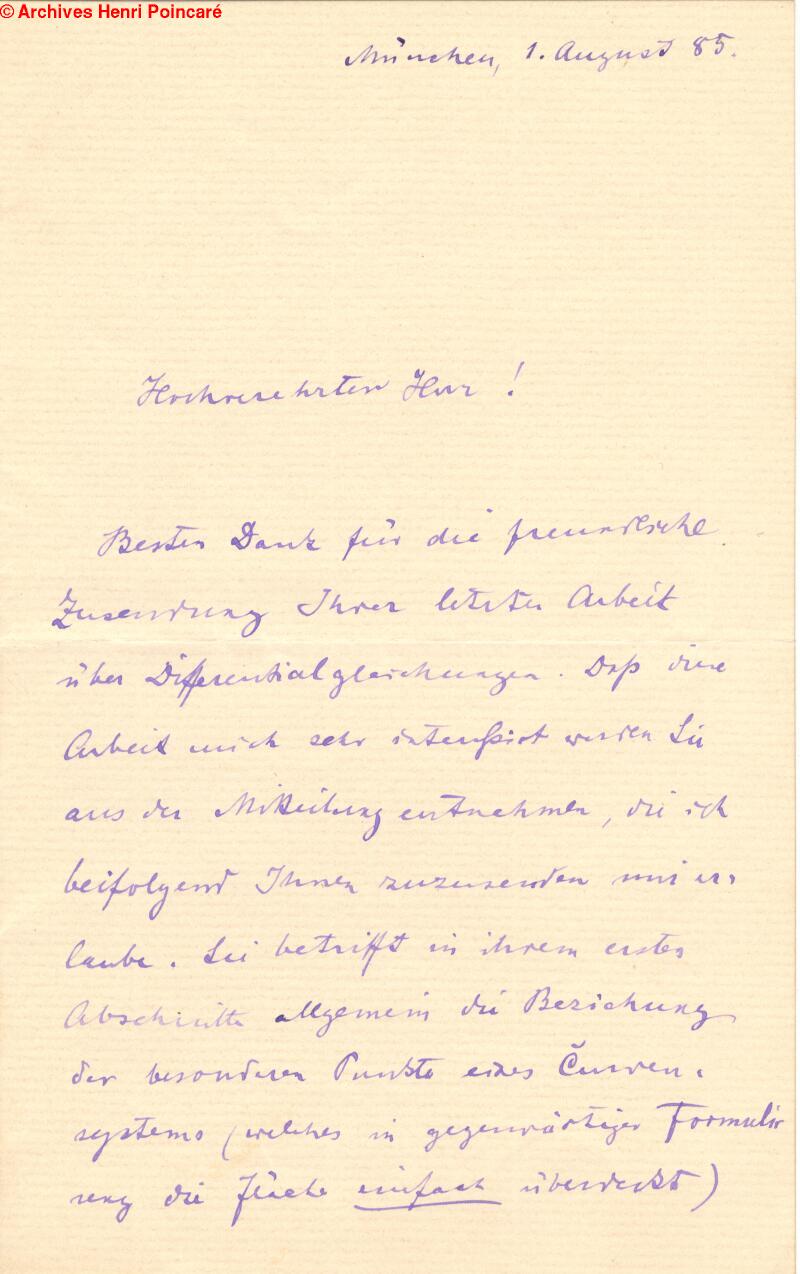 © Archives Henri Poincaré
München, 1. August 85.
Hochverehrter Herr !
Besten Dank für die freundliche
Zusendung Ihrer letzten Arbeit
über Differentialgleichungen. Daß diese
Arbeit mich sehr interessirt werden Sie
aus der Mitteilung entnehmen, die ich
beifolgend Ihnen zuzusenden mir er-
laube. Sie betrifft in ihrem ersten
Abschnitte allgemein die Beziehung
der besonderen Punkte eines Curven-
systems (welches in gegenwärtiger Formulir
rung die Fläche einfach überdeckt)